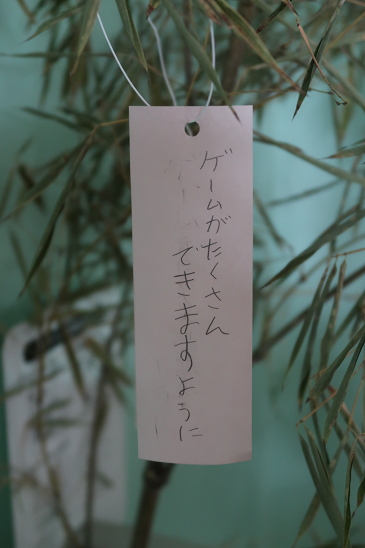 ゲームがたくさん
できますように